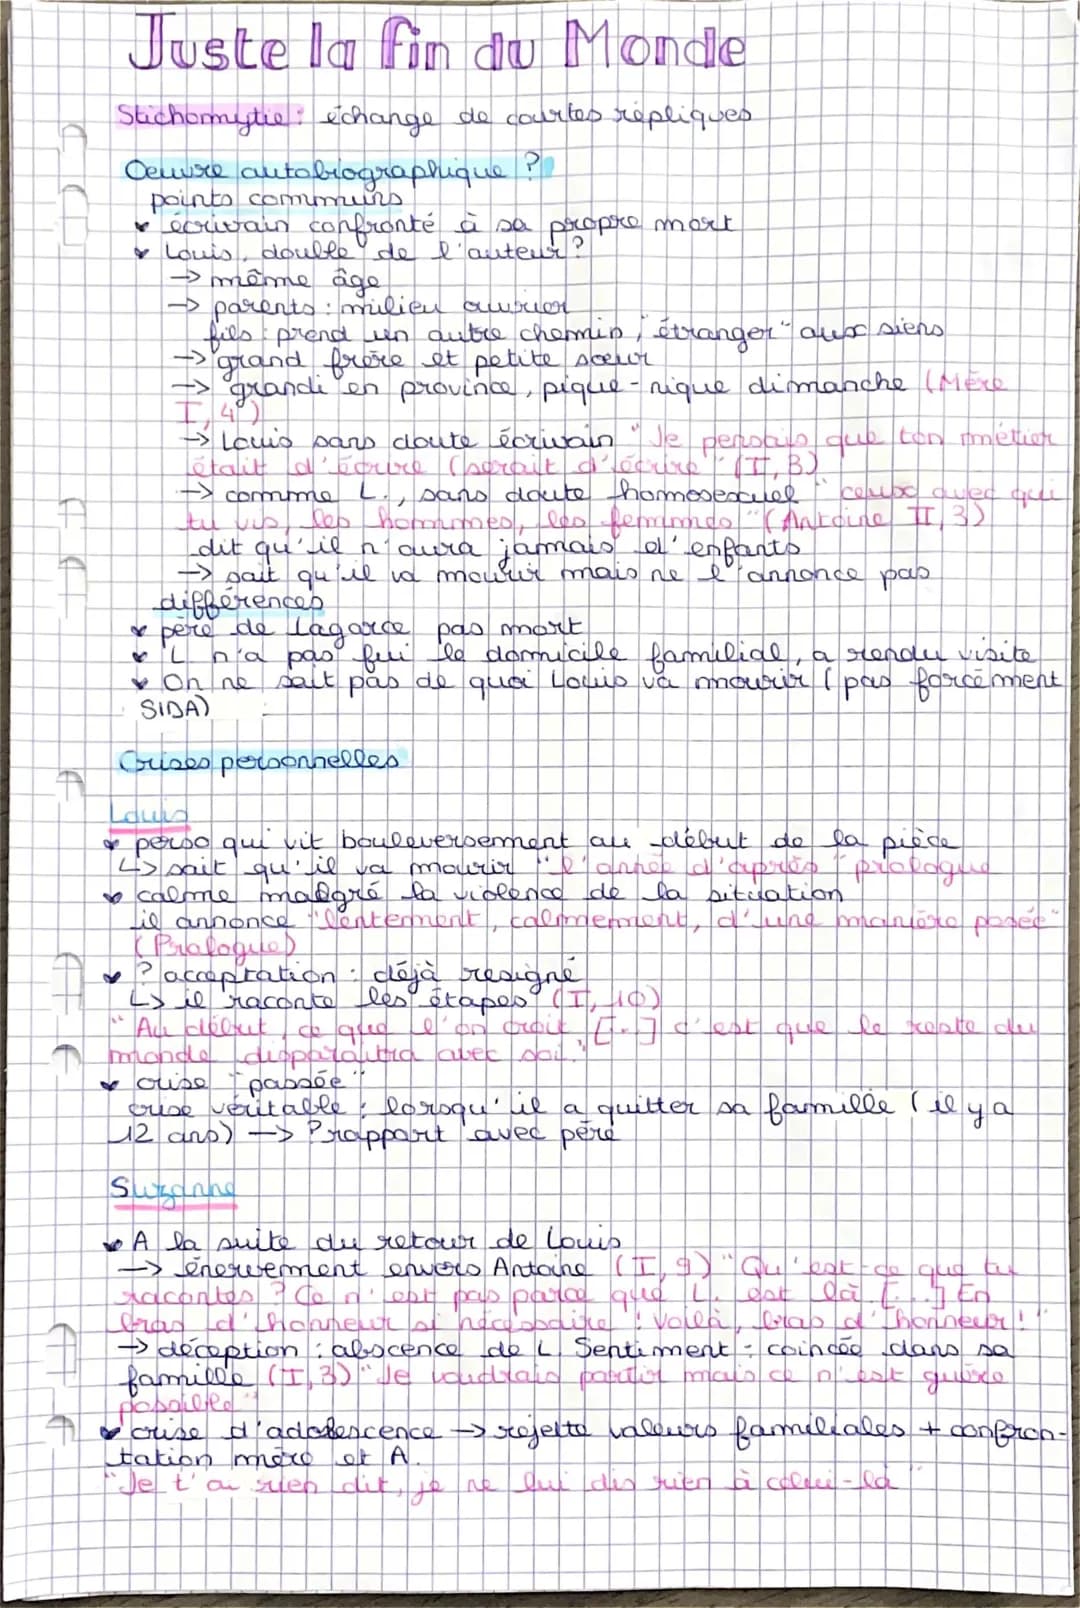 Juste la fin du Monde
Stichomytie : échange de courtes répliques
Oeuvre autobiographique ?
points communs
écrivain confronté à sa propre mort
Louis, double de l'auteur ?
→ même âge
→ parents : milieu ouvrier
fils : prend un autre chemin, "étranger" aux siens
→ grand frère et petite soeur
→ grandi en province, pique-nique dimanche (Mère
I, 4)
→ Louis sans doute écrivain "Je pensais que ton métier
était d'écrire (serait d'écrire" (I, 3)
→ comme L., sans doute homosexuel "ceux avec qui
tu vis, les hommes, les femmes" (Antoine II, 3)
dit qu'il n'aura jamais d'enfants
→ sait qu'il va mourir mais ne l'annonce pas
différences
père de Lagarce pas mort
L n'a pas fui le domicile familial, a rendu visite
On ne sait pas de quoi Louis va mourir (pas forcément
SIDA)
Crises personnelles
Louis
perso qui vit bouleversement au début de la pièce
↳ sait qu'il va mourir "l'année d'après" prologue
calme malgré la violence de la situation
il annonce "lentement, calmement, d'une manière posée"
(Prologue)
? acceptation : déjà resigné
↳ il raconte les étapes (I, 10)
"Au début, ce que l'on croit [..] c'est que le reste du
monde disparaîtra avec soi."
crise "passée"
crise véritable : lorsqu'il a quitter sa famille (il y a
12 ans) → ? rapport avec père
Suzanne
A la suite du retour de Louis
→ énervement envers Antoine (I, 9) "Qu'est-ce que tu
racontes ? Ce n'est pas parce que L. est là [...] En
bras d'honneur si nécessaire ! voilà, bras d'honneur !"
→ déception : abscence de L. Sentiment : coincée dans sa
famille (I, 3) "Je voudrais partir mais ce n'est guère
possible"
crise d'adolescence → rejette valeurs familiales + confron-
tation mère et A.
"Je t'ai rien dit, je ne lui dis rien à celui-là"